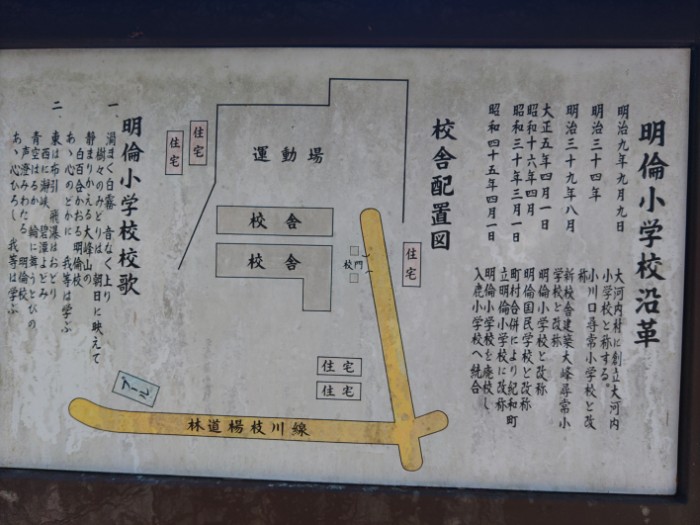 明倫小学校沿革
明治九年九月九日
大河内村に創立大河内
小学校と称する。
明治三十四年
小川口尋常小学校と改
称
明治三十九年八月
新校舎建築大峰尋常小
学校と改称
大正五年四月一日
明倫小学校と改称
昭和十六年四月
明倫国民学校と改称
昭和三十年三月一日
町村合併により紀和町
立明倫小学校に改称
昭和四十五年四月一日
明倫小学校を廃校し
入鹿小学校へ統合
校舎配置図
運動場
校舎
校舎
校門
住宅
住宅
住宅
住宅
住宅
プール
林道楊枝川線
明倫小学校校歌
一、渦まく白霧 音なく上り
樹々のみどりは 朝日に映えて
静まりかえる大峰山の
白百合かおる 明倫校
あゝ心のどかに 我等は学ぶ
二、東は布引 飛瀑はおどり
西に瀞峡 碧潭よどみ
青空はるか 輪に舞うとびの
声澄みわたる 明倫校
あゝ心ひろし 我等は学ぶ